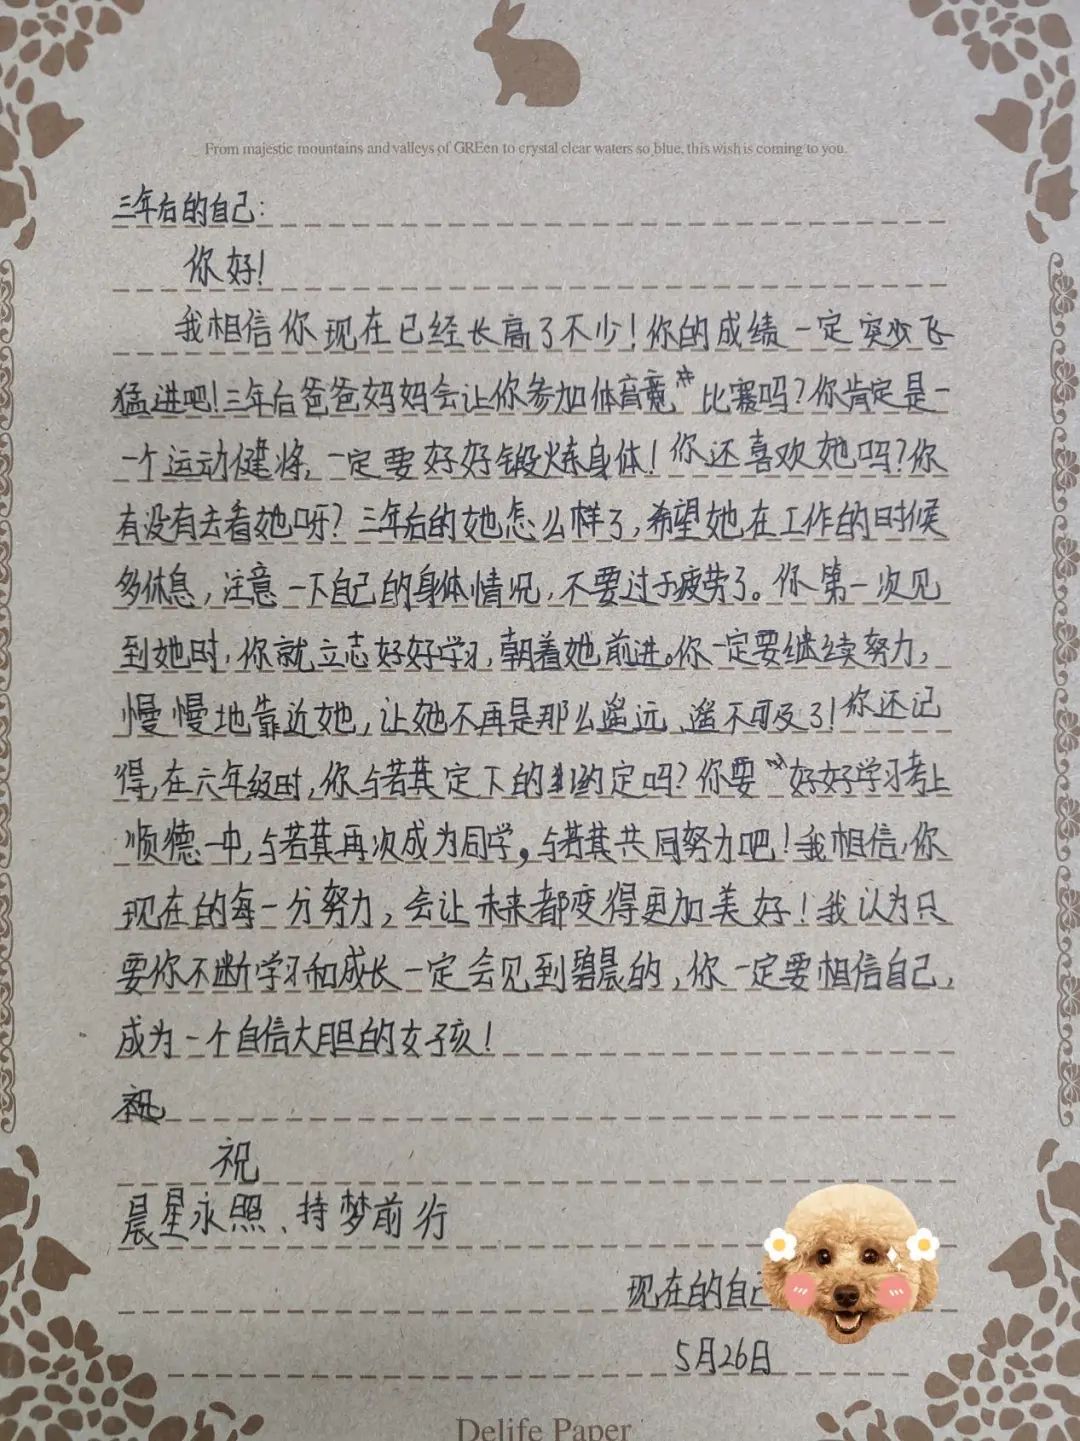 From majestic mountains and valleys of GREen to crystal clear waters so blue, this wish is coming to you.
三年后的自己:
你好!
我相信你现在已经长高了不少!你的成绩一定突飞
猛进吧!三年后爸爸妈妈会让你参加体育竞比赛吗?你肯定是一
一个运动健将,一定要好好锻炼身体!你还喜欢她吗?你
有没有去看她呀?三年后的她怎么样了,希望她在工作的时候
多休息,注意一下自己的身体情况,不要过于疲劳了。你第一次见
到她时,你就立志好好学习,朝着她前进。你一定要继续努力,
慢慢地靠近她,让她不再是那么遥远、遥不可及了!你还记
得,在六年级时,你与若其定下的约定吗?你要好好学习考上
顺德一中,与若其再次成为同学。与若其共同努力吧!我相信,你
现在的每一分努力,会让未来都变得更加美好!我认为只
要你不断学习和成长一定会见到碧晨的,你一定要相信自己,
成为一个自信大胆的女孩!
祝
祝
晨星永照、持梦前行
现在的自己
5月26日
Delife Paper